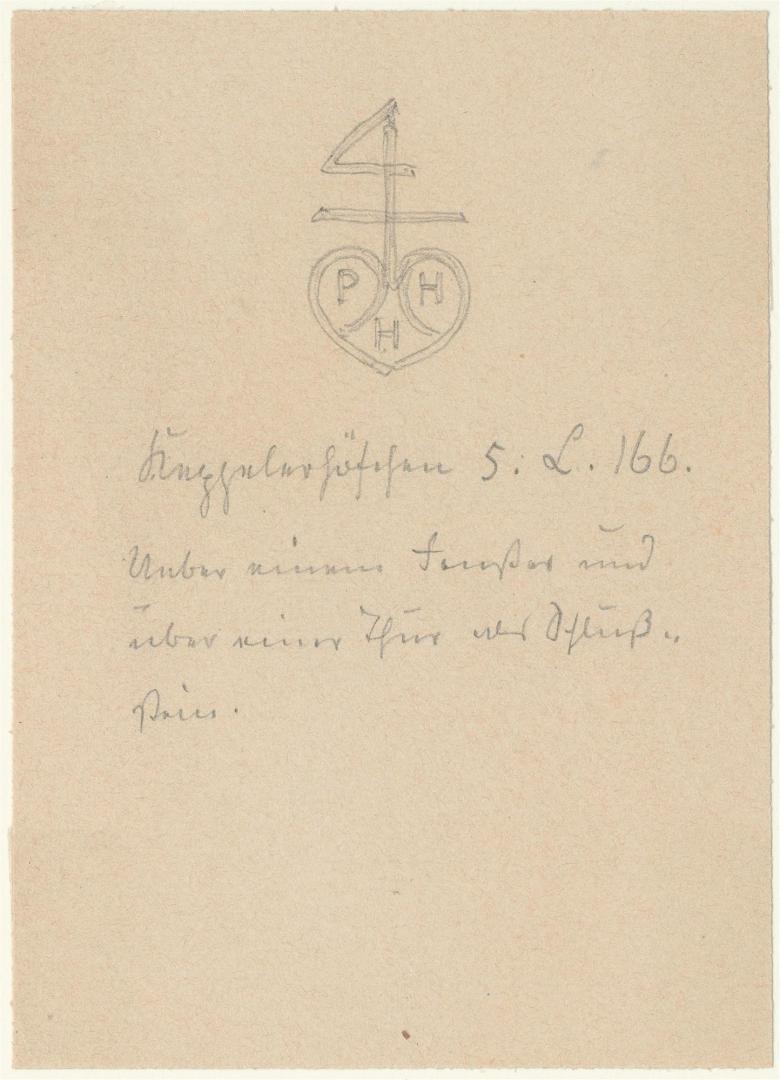 P H
H
Keppelerhöfchen 5. L. 166.
Ueber einem Fenster und
über einer Thür als Schluß-
stein.